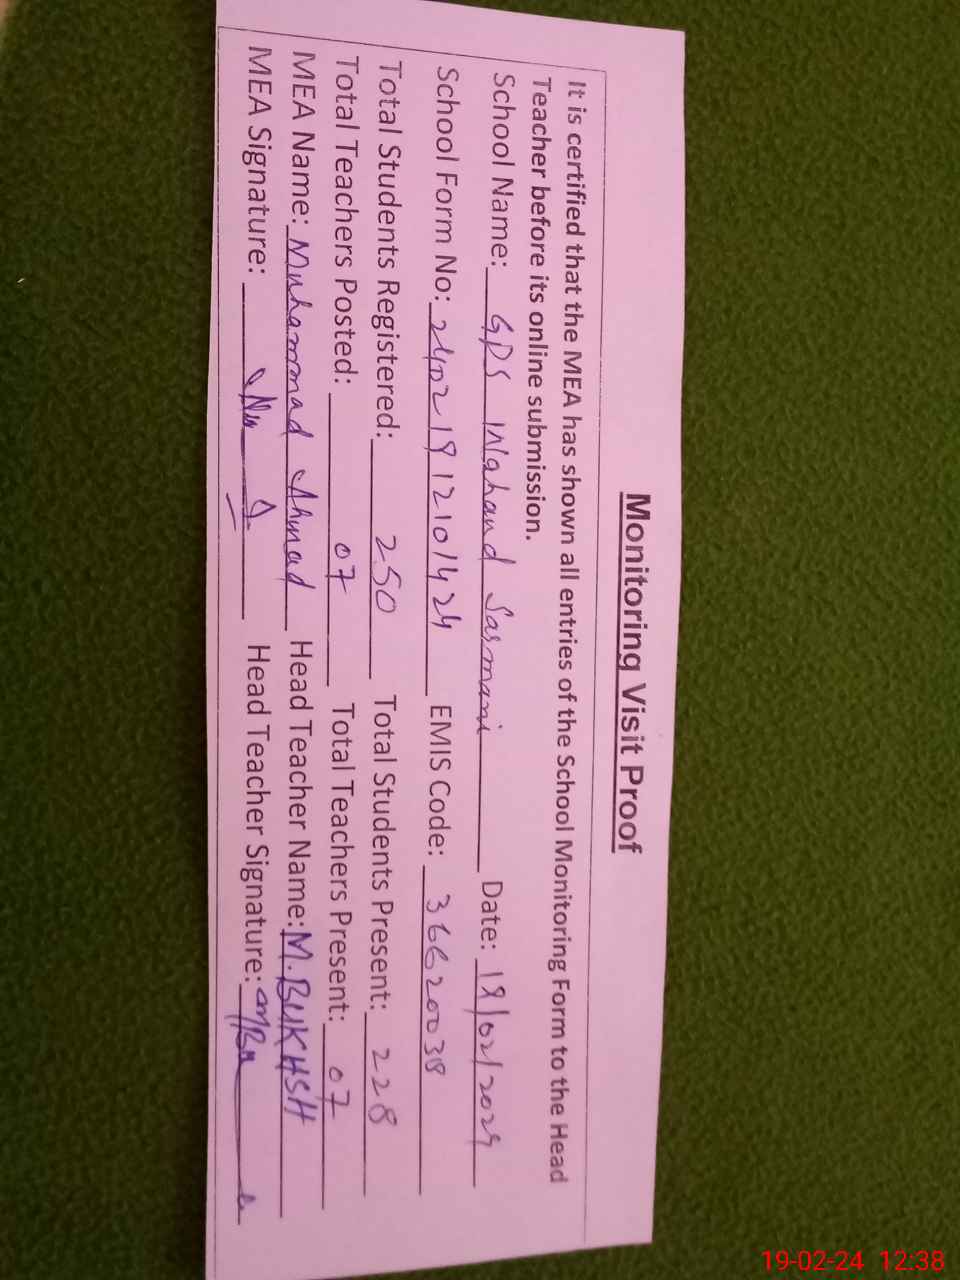 Monitoring Visit Proof
It is certified that the MEA has shown all entries of the School Monitoring Form to the Head
Teacher before its online submission.
School Name: GPS Wahand Sasmani Date: 19/02/2024
School Form No: 24021912101424 EMIS Code: 36620038
Total Students Registered: 250 Total Students Present: 228
Total Teachers Posted: 07 Total Teachers Present: 07
MEA Name: Muhammad Ahmad Head Teacher Name: M.BUKHSH
MEA Signature: Head Teacher Signature:
19-02-24 12:38